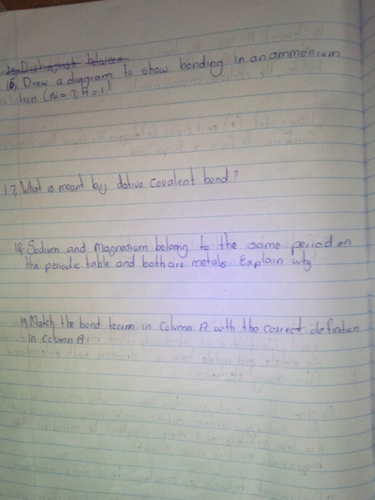 16, Draw a diagram to show bonding in an ammonium
ion (N=7, H=1)
17, What is meant by dative covalent bond?
18, Sodium and Magnesium belong to the same period on
the periodic table and both are metals Explain why
19, Match the bond term in Column A with the correct definition
in column B: